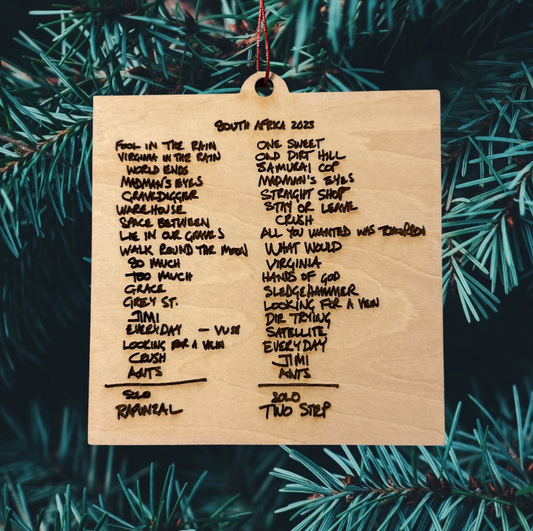 SOUTH AFRICA 2025
FOOL IN THE RAIN
VIRGINIA IN THE RAIN
WORLD ENDS
MADMAN'S EYES
GRAVEDIGGER
WAREHOUSE
SPACE BETWEEN
LIE IN OUR GRAVES
WALK ROUND THE MOON
SO MUCH
TOO MUCH
GRACE
GREY ST.
JIMI
EVERYDAY - VUSI
LOOKING FOR A VEIN
CRUSH
ANTS
SOLO
RAPUNZAL
ONE SWEET
OLD DIRT HILL
SAMURAI COP
MADMAN'S EYES
STRAIGHT SHOP
STAY OR LEAVE
CRUSH
ALL YOU WANTED WAS TOMORROW
WHAT WOULD
VIRGINIA
HANDS OF GOD
SLEDGEHAMMER
LOOKING FOR A VEIN
DIE TRYING
SATELLITE
EVERYDAY
JIMI
ANTS
SOLO
TWO STEP